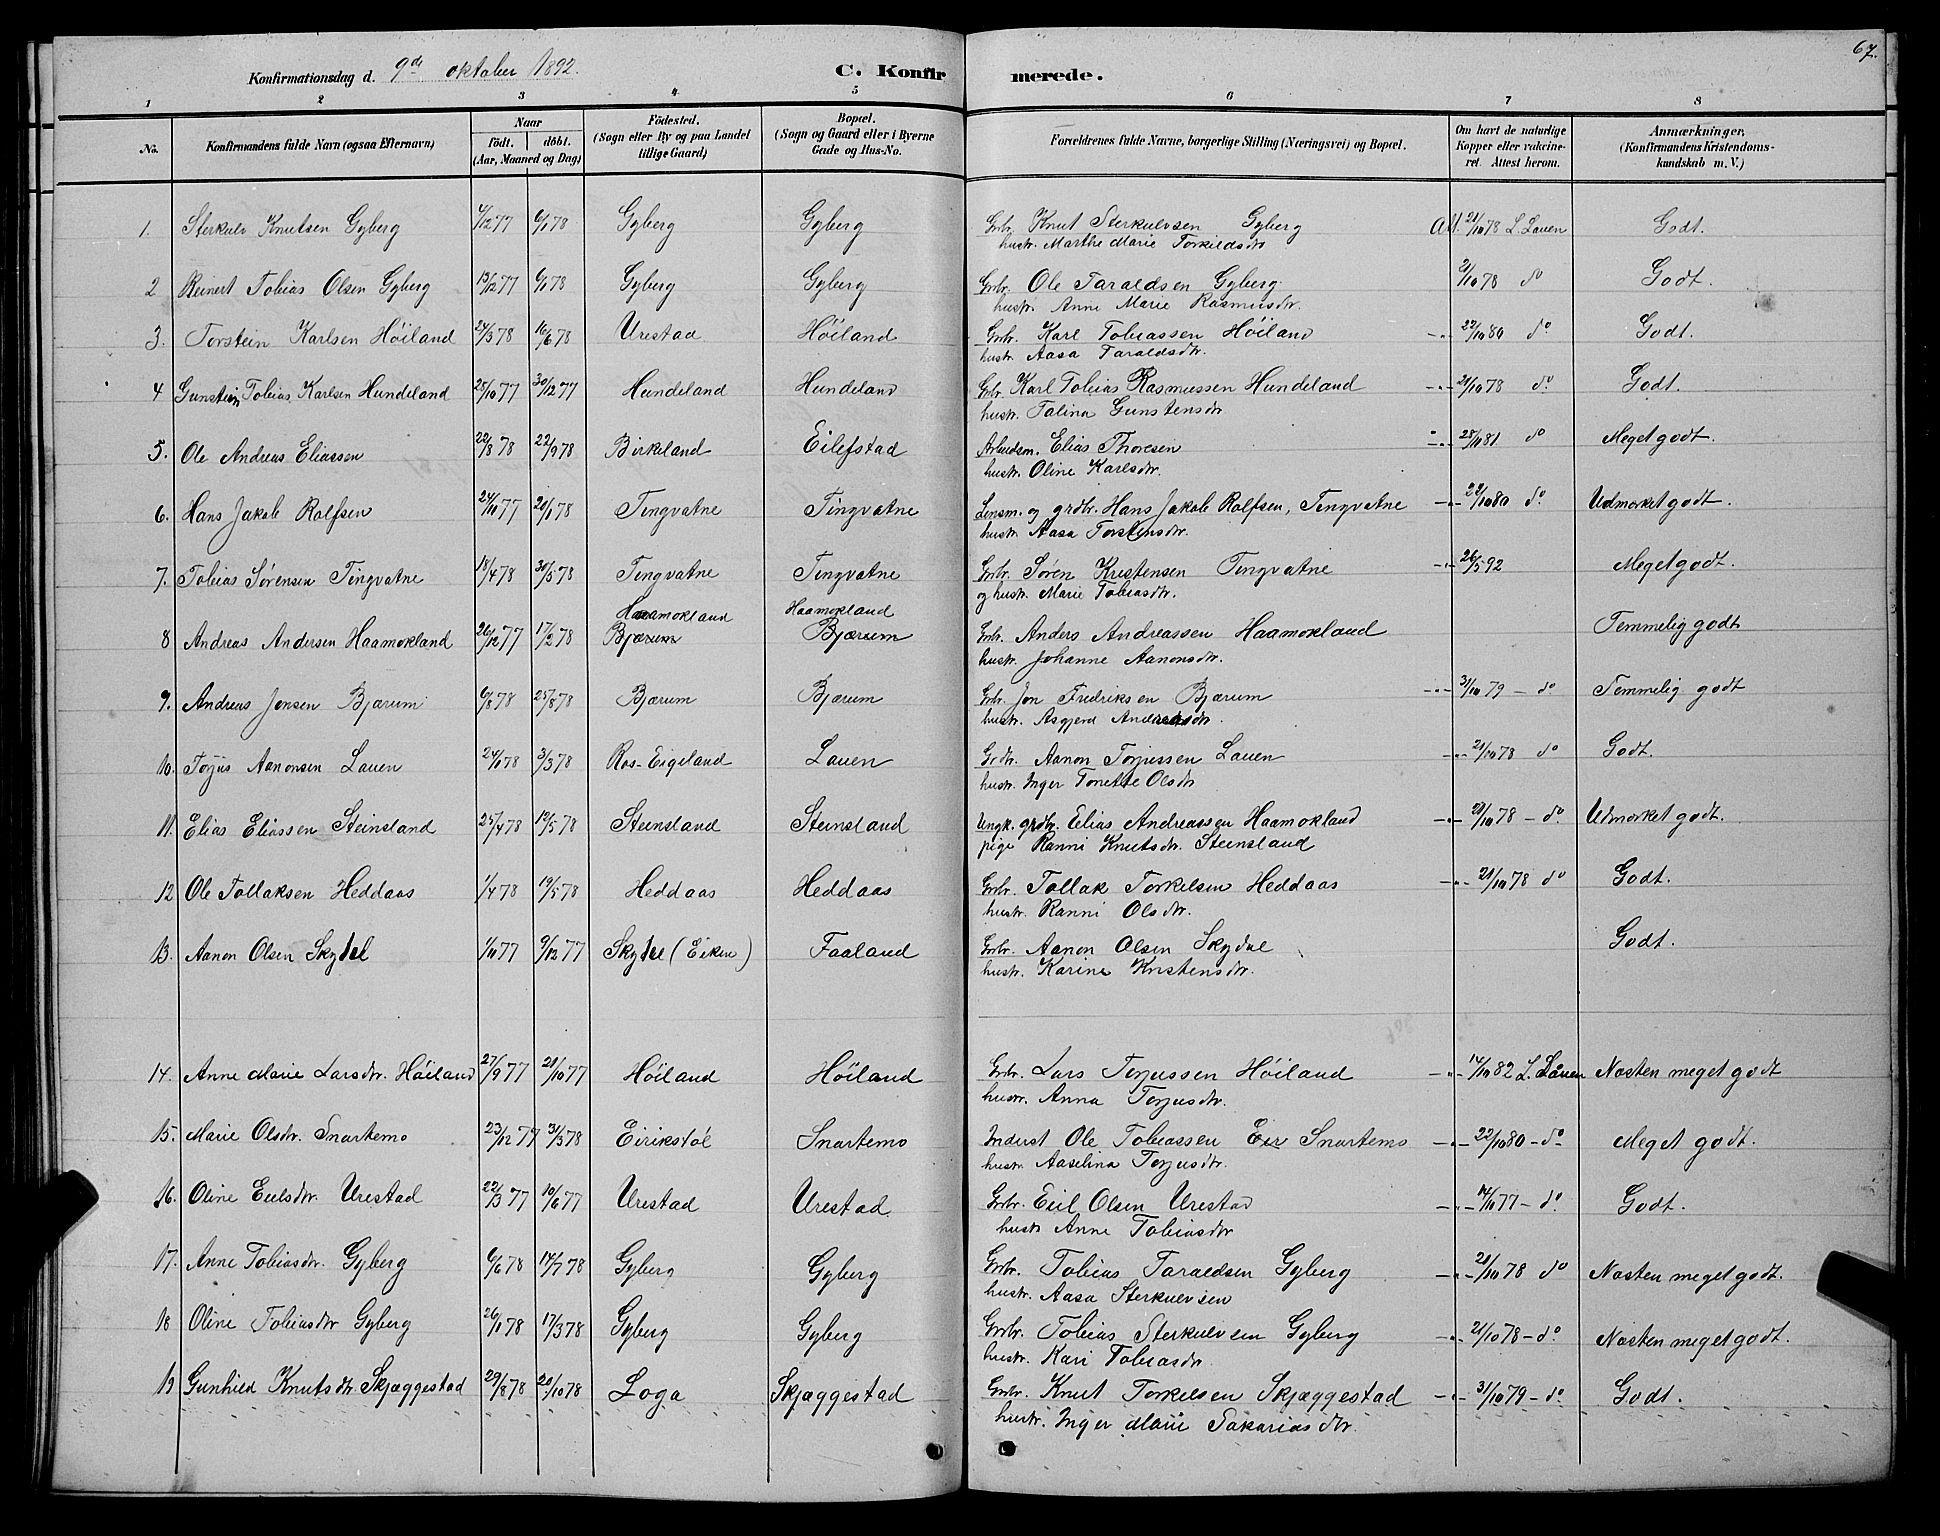 67.
Konfirmationsdag d. 9de oktober 1892.
C. Konfirmerede.
1 2 3 4 5 6 7 8
No. Konfirmandens fulde Navn (ogsaa Efternavn) Naar födt. döbt. (Aar, Maaned og Dag) Födested. (Sogn eller By og paa Landet tillige Gaard) Bopæl. (Sogn og Gaard eller i Byerne Gade og Hus-No. Forældrenes fulde Navne, borgerlige Stilling (Næringsvei) og Bopæl. Om havt de naturlige Kopper eller vakcineret. Attest herom. Anmærkninger, (Konfirmandens Kristendomskundskab m. V.)
1. Sterkulv Knutsen Gyberg 4/12 77 6/1 78 Gyberg Gyberg Grbr. Knut Sterkulvsen Gyberg Att. 21/10 78 L. Lauen Godt.
hustr. Marthe Marie Torkildsdtr
2 Reinert Tobias Olsen Gyberg 13/12 77 6/1 78 Gyberg Gyberg Grbr. Ole Taraldsen Gyberg 21/10 78 do Godt.
hustr. Anne Marie Rasmusdtr.
3. Torstein Karlsen Höiland 24/3 78 16/6 78 Urestad Höiland Grbr. Karl Tobiassen Höiland -"- 22/10 80 do Godt.
hustr. Aasa Taraldsdtr.
4 Gunstein Tobias Karlsen Hundeland 25/10 77 30/12 77 Hundeland Hundeland Grbr. Karl Tobias Rasmussen Hundeland -"- 21/10 78 do. Godt.
hustr. Talina Gunstensdtr
5. Ole Andreas Eliassen 22/8 78 22/9 78 Birkeland Eilefstad Arbeidsm. Elias Thoresen -"- 28/10 81 do Meget godt.
hustr. Oline Karlsdtr.
6. Hans Jakob Rolfsen 24/11 77 20/1 78 Tingvatne Tingvatne Lensm. og grdbr. Hans Jakob Rolfsen, Tingvatne -"- 22/10 80 do Udmerket godt.
hustr. Aasa Torstensdtr.
7. Tobias Sørensen Tingvatne 18/4 78 30/5 78 Tingvatne Tingvatne Grbr. Søren Kristensen Tingvatne -"- 26/5 92 Meget godt.
og hustr. Marie Tobiasdtr.
Haamokland Haamokland
8 Andreas Andersen Haamokland 26/12 77 17/2 78 Bjærum Bjærum Grbr. Anders Andreassen Haamokland Temmelig godt
hustr. Johanne Aanonsdtr.
9. Andreas Jonsen Bjærum 6/8 78 25/8 78 Bjærum Bjærum Grbr. Jon Fredriksen Bjærum -"- 31/10 79 - do Temmelig godt
hustr. Asgjerd Andreasdtr.
10. Torjus Aanonsen Lauen 24/1 78 3/3 78 Ros-Eigeland Lauen Grdr. Aanon Torjussen Lauen -"- 21/10 78 do Godt.
hustr. Inger Tonette Olsdtr
11. Elias Eliassen Steinsland 25/4 78 19/5 78 Steinsland Steinsland Ungk. grdbr. Elias Andreassen Haamokland -"- 21/10 78 - do. Udmerket godt.
pige Ranni Knutsdtr. Steinsland
12 Ole Tollaksen Heddaas 1/4 78 19/5 78 Heddaas Heddaas Grbr. Tollak Torkelsen Heddaas -"- 21/10 78 do Godt.
hustr. Ranni Olsdtr.
13. Aanon Olsen Skydel 1/11 77 9/12 77 Skydel (Eiken) Faaland Grbr. Aanon Olsen Skydal Godt.
hustr. Karine Kristensdtr.
14. Anne Marie Larsdtr. Höiland 27/9 77 21/10 77 Höiland Höiland Grbr. Lars Torjussen Höiland -"- 14/10 82 L. Lauen Næsten meget godt
hustr. Anna Torjusdtr.
15. Marie Olsdtr. Snartemo 23/12 77 31/3 78 Eirikstøl Snartemo Inderst Ole Tobiassen Snartemo -"- 22/10 80 - do- Meget godt.
hustr. Aaselina Torjusdtr.
16. Oline Eielsdtr. Urestad 22/3 77 10/6 77 Urestad Urestad Grbr. Eiel Olsen Urestad -"- 14/10 77 - do. Godt.
hustr Anne Tobiasdtr
17. Anne Tobiasdtr. Gyberg 6/6 78 14/7 78 Gyberg Gyberg Grbr. Tobias Taraldsen Gyberg -"- 21/10 78 do Næsten meget godt.
hustr. Aasa Sterkulvsen
18 Oline Tobiasdtr Gyberg 26/1 78 17/3 78 Gyberg Gyberg Grbr. Tobias Sterkulvsen Gyberg -"- 21/10 78 - do Næsten meget godt.
hustr. Kari Tobiasdtr.
19 Gunhild Knutsdtr. Skjæggestad 29/8 78 20/10 78 Loga Skjæggestad Grbr. Knut Torkelsen Skjæggestad -"- 31/10 79 - do. Godt.
hustr. Inger Marie Sakariasdtr.